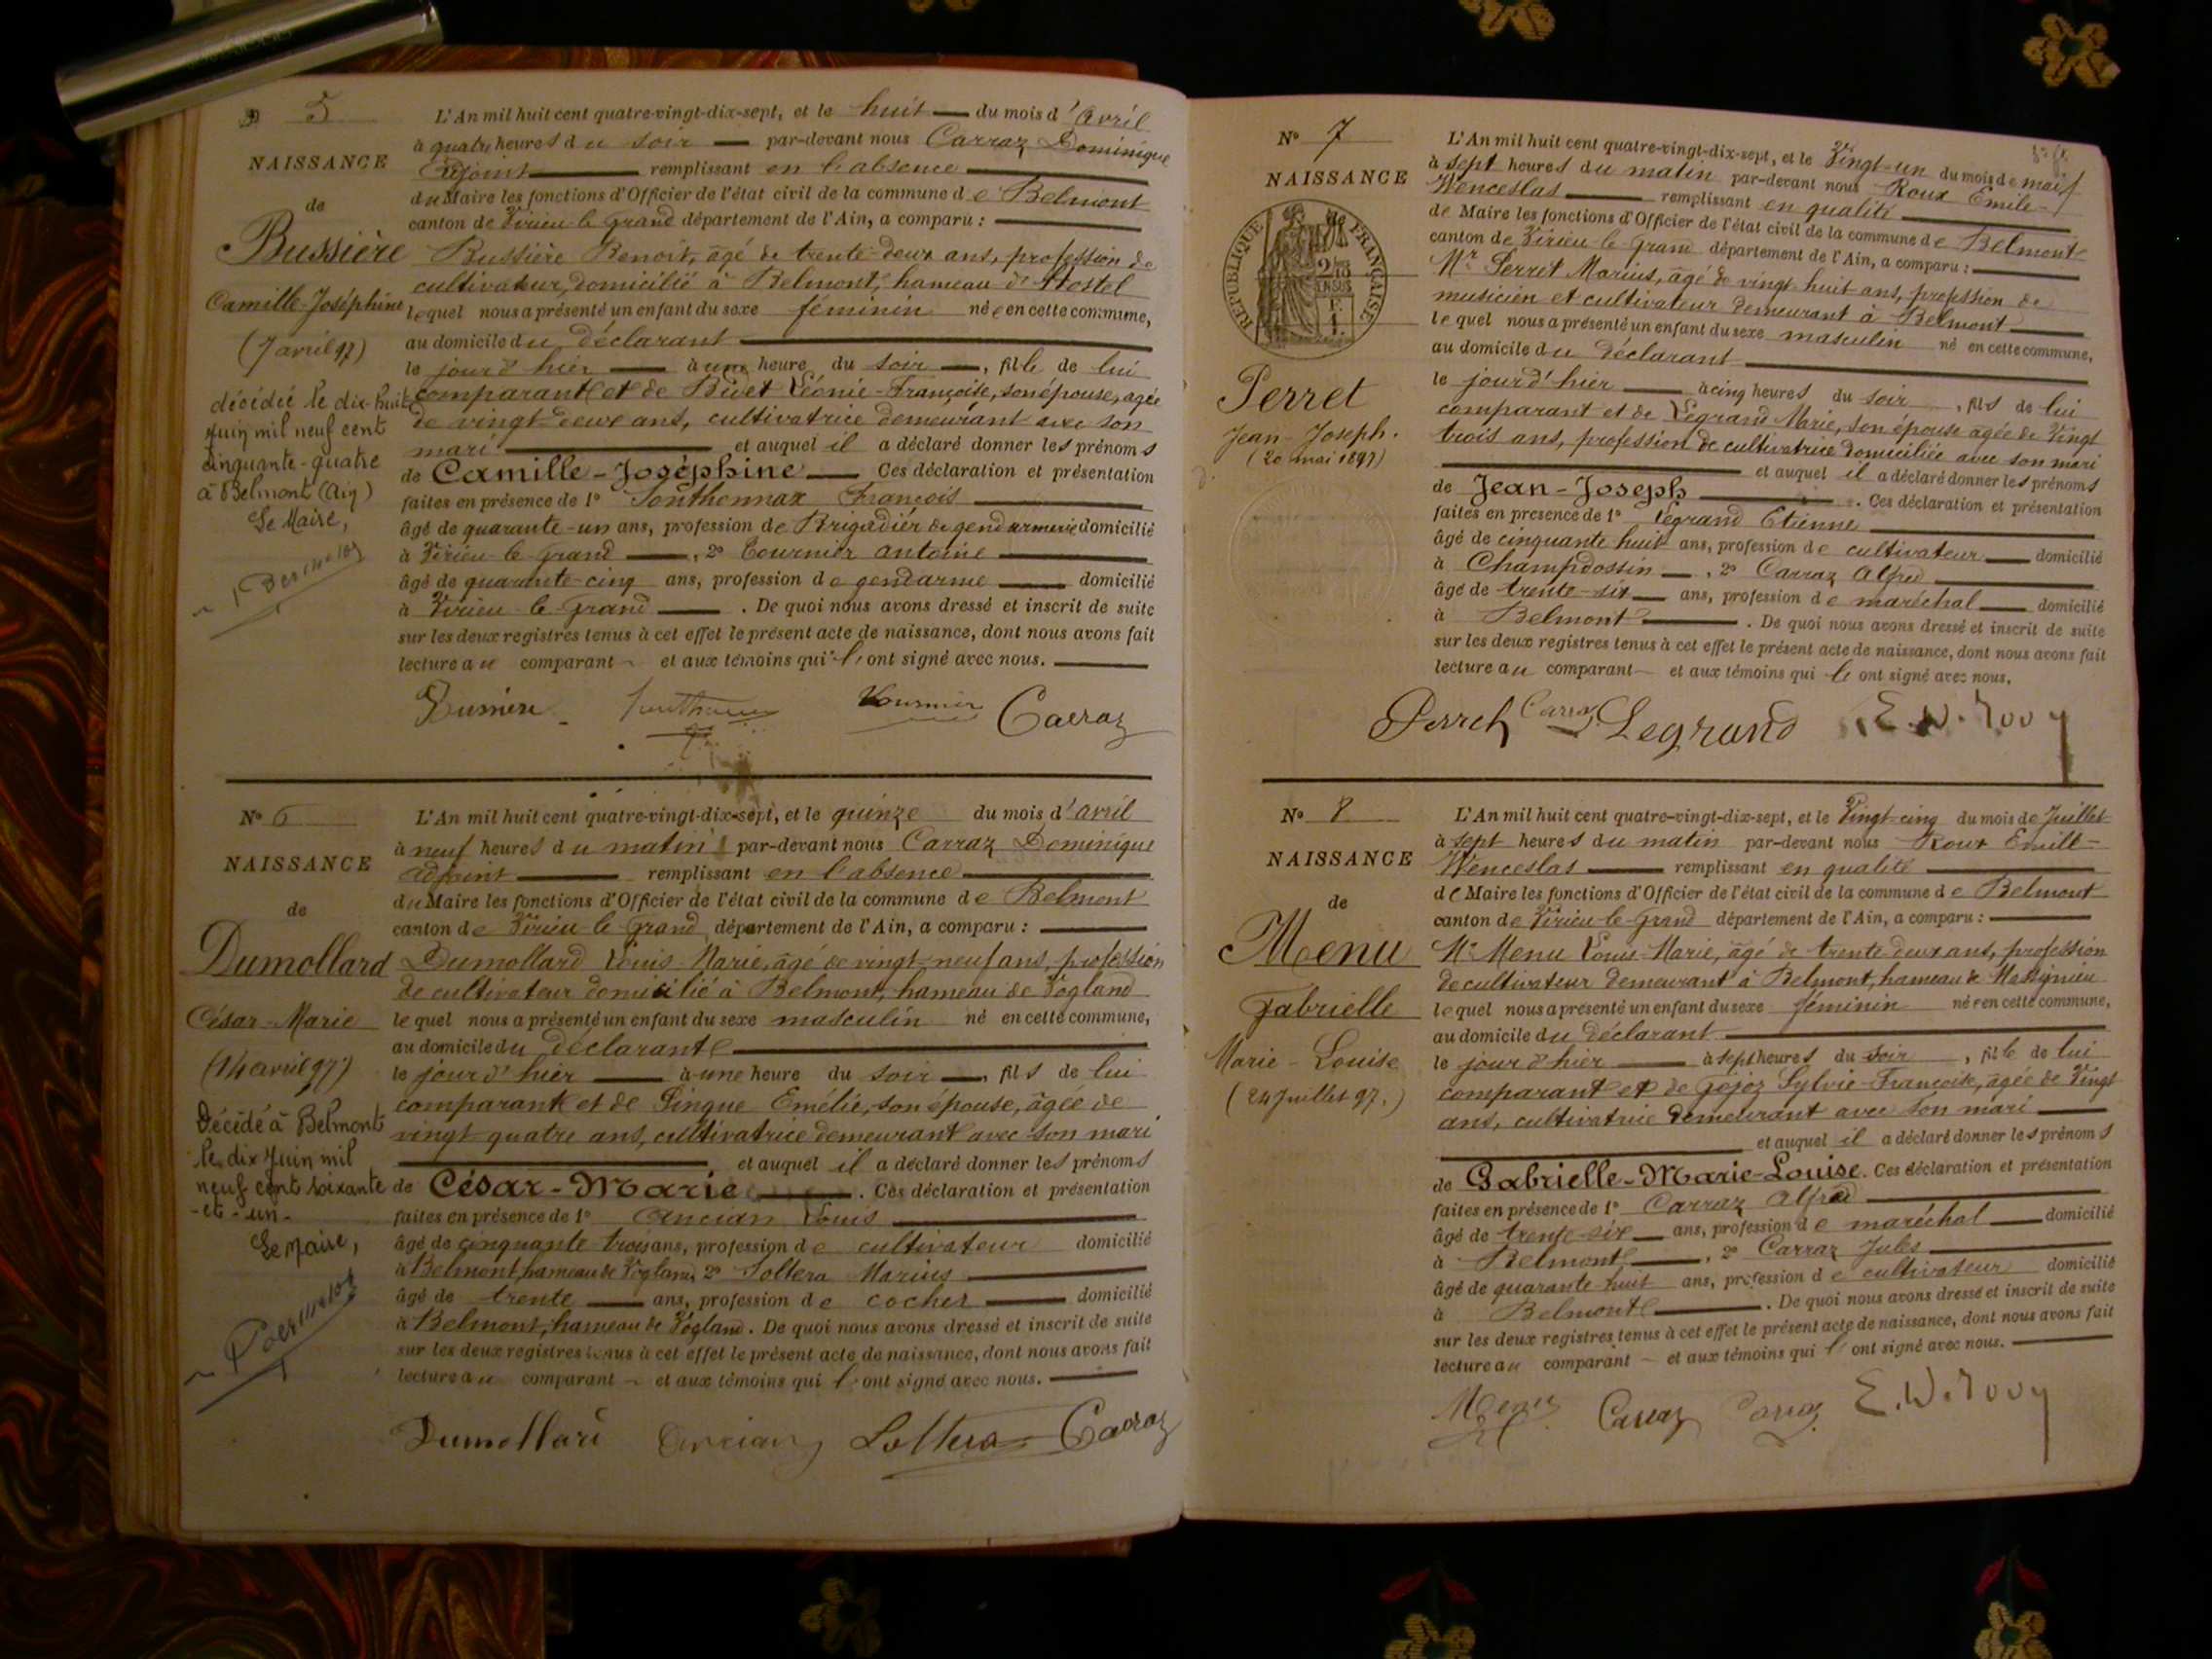 5
NAISSANCE
de
Bussière
Camille-Joséphine
(7 avril 97)
décédée le dix-huit
juin mil neuf cent
cinquante-quatre
à Belmont (Ain)
Le Maire,
L'An mil huit cent quatre-vingt-dix-sept, et le huit du mois d'avril
à quatre heures du soir par-devant nous Carraz Dominique
adjoint remplissant en l'absence
du Maire les fonctions d'Officier de l'état civil de la commune de Belmont
canton de Virieu-le-Grand département de l'Ain, a comparu :
Bussière Benoit, âgé de trente-deux ans, profession de
cultivateur, domicilié à Belmont, hameau d'Hostel
lequel nous a présenté un enfant du sexe féminin née en cette commune,
au domicile du déclarant
le jour d'hier à une heure du soir, fille de lui
comparant et de Bivet Léonie-Françoise, son épouse, agée
de vingt-deux ans, cultivatrice demeurant avec son
mari et auquel il a déclaré donner les prénoms
de Camille-Joséphine Ces déclaration et présentation
faites en présence de 1° Ponthonnax François
âgé de quarante-un ans, profession de Brigadier de gendarmerie domicilié
à Virieu-le-Grand, 2° Tournier Antoine
âgé de quarante-cinq ans, profession de gendarme domicilié
à Virieu-le-Grand. De quoi nous avons dressé et inscrit de suite
sur les deux registres tenus à cet effet le présent acte de naissance, dont nous avons fait
lecture au comparant et aux témoins qui l'ont signé avec nous.
Bussière Tournier Carraz
N° 6
NAISSANCE
de
Dumollard
César-Marie
(14 avril 97)
Décédé à Belmont
le dix Juin mil
neuf cent soixante
-et-un-
Le Maire,
L'An mil huit cent quatre-vingt-dix-sept, et le quinze du mois d'avril
à neuf heures du matin par-devant nous Carraz Dominique
adjoint remplissant en l'absence
du Maire les fonctions d'Officier de l'état civil de la commune de Belmont
canton de Virieu-le-Grand, département de l'Ain, a comparu :
Dumollard Louis-Marie, âgé de vingt-neuf ans, profession
de cultivateur domicilié à Belmont, hameau de Vogland
lequel nous a présenté un enfant du sexe masculin né en cette commune,
au domicile du déclarant
le jour d'hier à une heure du soir, fils de lui
comparant et de Singue Emélie, son épouse, âgée de
vingt-quatre ans, cultivatrice demeurant avec son mari
et auquel il a déclaré donner les prénoms
de César-Marie. Ces déclaration et présentation
faites en présence de 1° Ancian Louis
âgé de cinquante trois ans, profession de cultivateur domicilié
à Belmont, hameau de Vogland, 2° Soltera Marius
âgé de trente ans, profession de cocher domicilié
à Belmont, hameau de Vogland. De quoi nous avons dressé et inscrit de suite
sur les deux registres tenus à cet effet le présent acte de naissance, dont nous avons fait
lecture au comparant et aux témoins qui l'ont signé avec nous.
Dumollard Ancian Soltera Carraz
N° 7
NAISSANCE
RÉPUBLIQUE FRANÇAISE
Perret
Jean-Joseph.
(20 mai 1897)
L'An mil huit cent quatre-vingt-dix-sept, et le Vingt-un du mois de mai
à sept heures du matin par-devant nous Roux Emile-
Wenceslas remplissant en qualité
de Maire les fonctions d'Officier de l'état civil de la commune de Belmont
canton de Virieu-le-Grand département de l'Ain, a comparu :
Mr Perret Marius, âgé de vingt-huit ans, profession de
musicien et cultivateur demeurant à Belmont
lequel nous a présenté un enfant du sexe masculin né en cette commune,
au domicile du déclarant
le jour d'hier à cinq heures du soir, fils de lui
comparant et de Legrand Marie, son épouse agée de Vingt
trois ans, profession de cultivatrice domiciliée avec son mari
et auquel il a déclaré donner les prénoms
de Jean-Joseph. Ces déclaration et présentation
faites en présence de 1° Legrand Etienne
âgé de cinquante huit ans, profession de cultivateur domicilié
à Champdossin, 2° Carraz Alfred
âgé de trente-six ans, profession de maréchal domicilié
à Belmont. De quoi nous avons dressé et inscrit de suite
sur les deux registres tenus à cet effet le présent acte de naissance, dont nous avons fait
lecture au comparant et aux témoins qui l'ont signé avec nous.
Perret Carraz Legrand E. W. Roux
N° 8
NAISSANCE
de
Menu
Gabrielle
Marie-Louise
(24 Juillet 97.)
L'An mil huit cent quatre-vingt-dix-sept, et le Vingt-cinq du mois de Juillet
à sept heures du matin par-devant nous Roux Emile-
Wenceslas remplissant en qualité
de Maire les fonctions d'Officier de l'état civil de la commune de Belmont
canton de Virieu-le-Grand département de l'Ain, a comparu :
Mr Menu Louis-Marie, âgé de trente-deux ans, profession
de cultivateur demeurant à Belmont, hameau de Massignieu
lequel nous a présenté un enfant du sexe féminin née en cette commune,
au domicile du déclarant
le jour d'hier à sept heures du soir, fille de lui
comparant et de Gojoz Sylvie-Françoise, âgée de Vingt
ans, cultivatrice demeurant avec son mari
et auquel il a déclaré donner les prénoms
de Gabrielle-Marie-Louise. Ces déclaration et présentation
faites en présence de 1° Carraz Alfred
âgé de trente-six ans, profession de maréchal domicilié
à Belmont, 2° Carraz Jules
âgé de quarante-huit ans, profession de cultivateur domicilié
à Belmont. De quoi nous avons dressé et inscrit de suite
sur les deux registres tenus à cet effet le présent acte de naissance, dont nous avons fait
lecture au comparant et aux témoins qui l'ont signé avec nous.
Menu Carraz Carraz E. W. Roux